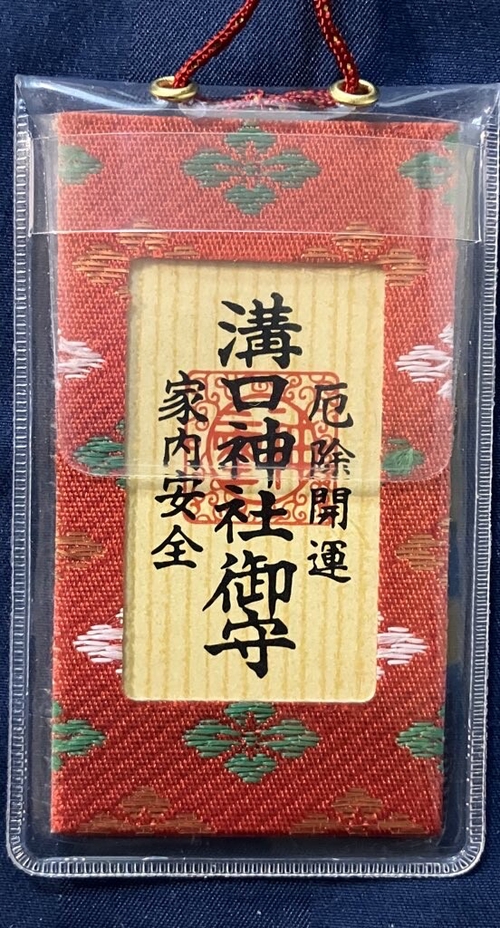 厄除開運
溝口神社御守
家内安全